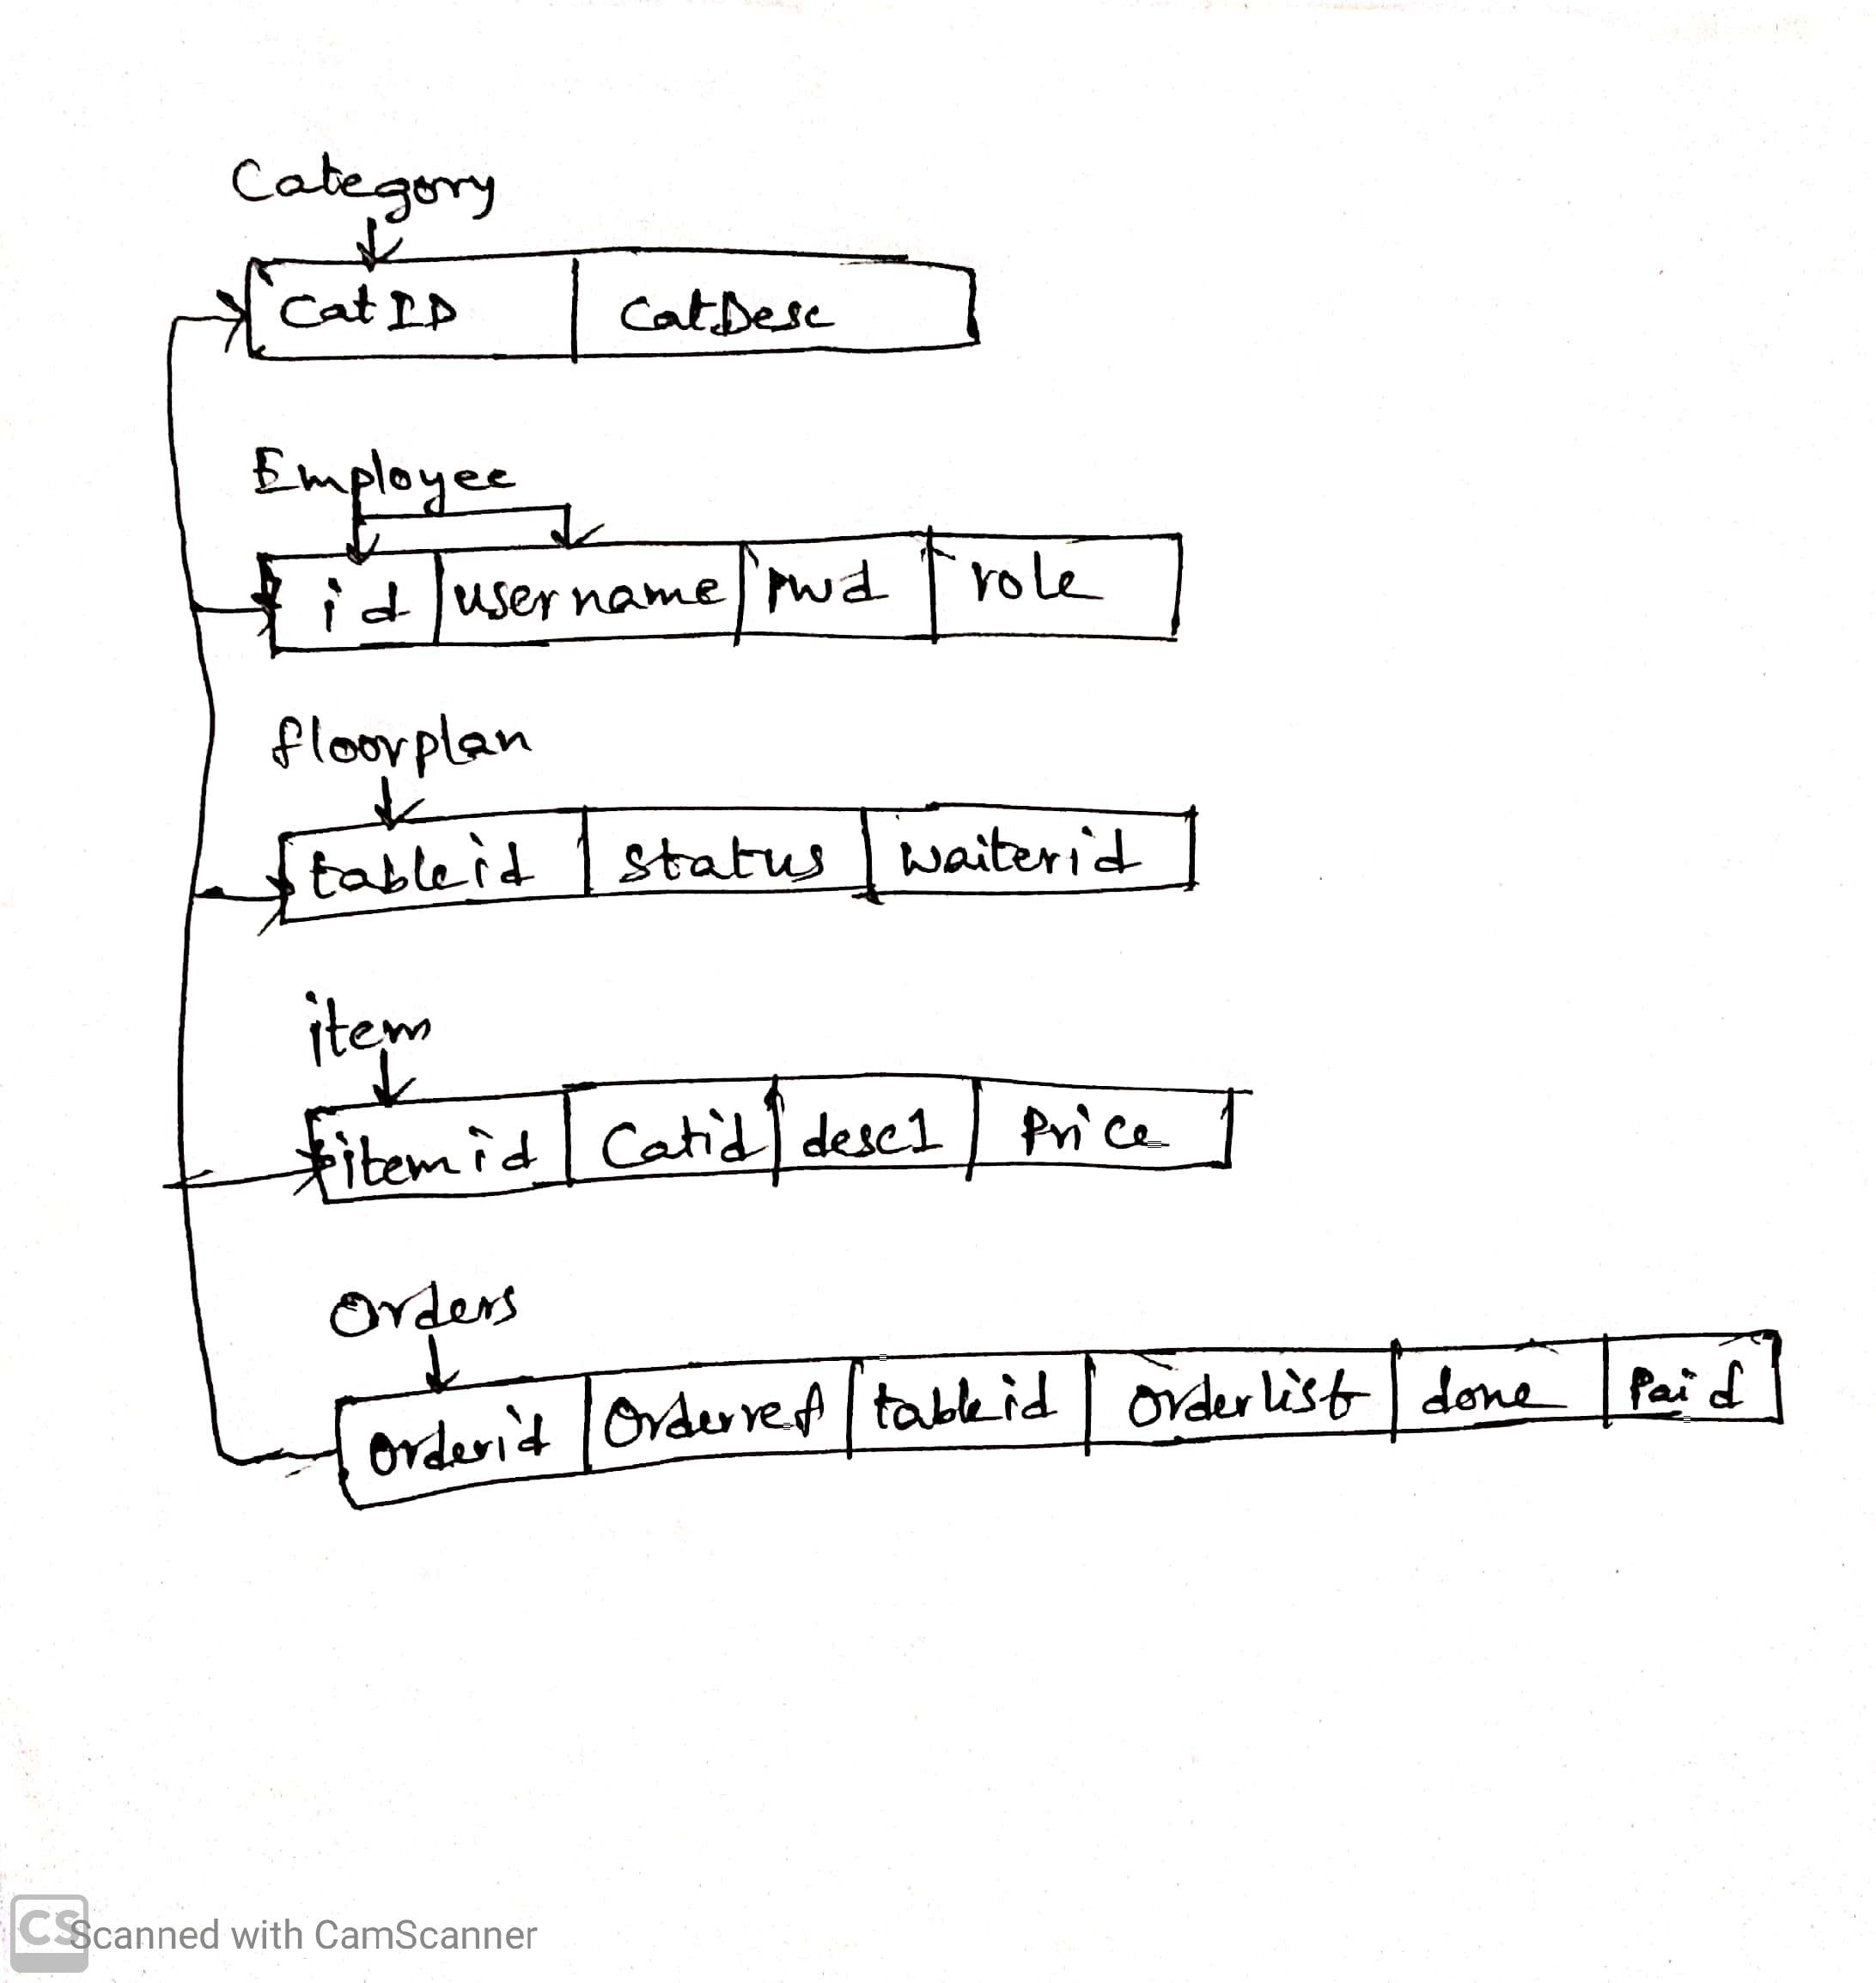 Category
CatID CatDesc
Employee
id username pwd role
floorplan
tableid status waiterid
item
itemid Catid desc1 Price
Orders
orderid Orderref tableid Orderlist done Paid
CS Scanned with CamScanner